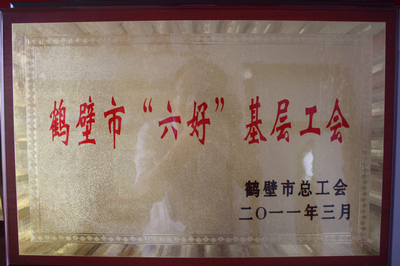 鹤壁市“六好”基层工会
鹤壁市总工会
二〇一一年三月